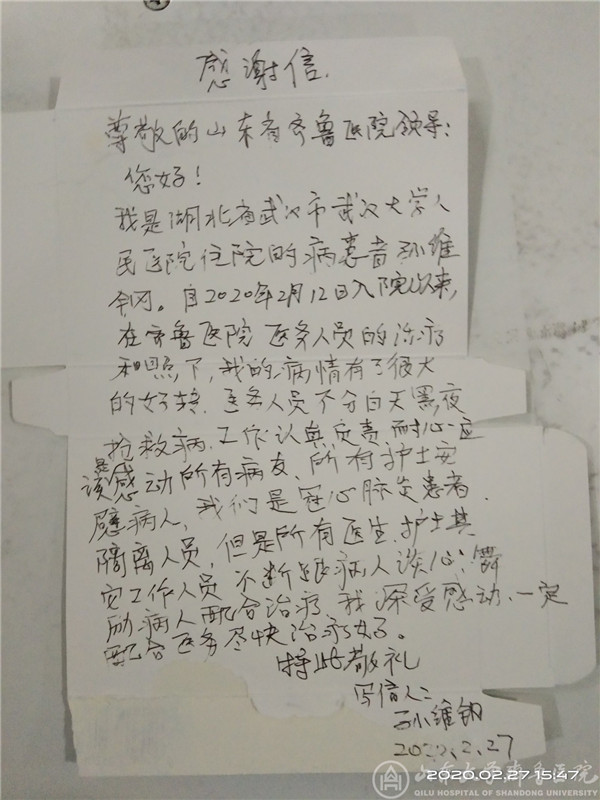 感谢信.
尊敬的山东省齐鲁医院领导:
您好!
我是湖北省武汉市武汉大学人
民医院住院的病患者孙维
钢。自2020年2月12日入院以来,
在齐鲁医院医务人员的治疗
和照下,我的病情有了很大
的好转.医务人员不分白天黑夜
抢救病,工作认真负责耐心.应
该感动所有病友.所有护士安
病人,我们是冠心肺炎患者.
隔离人员,但是所有医生.护士其
它工作人员不断跟病人谈心.
励病人配合治疗.我深受感动.一定
配合医务尽快治疗好。
特此敬礼
写信人:
孙维钢
2020.2.27
2020.02.27 15:47
山东大学齐鲁医院
QILU HOSPITAL OF SHANDONG UNIVERSITY